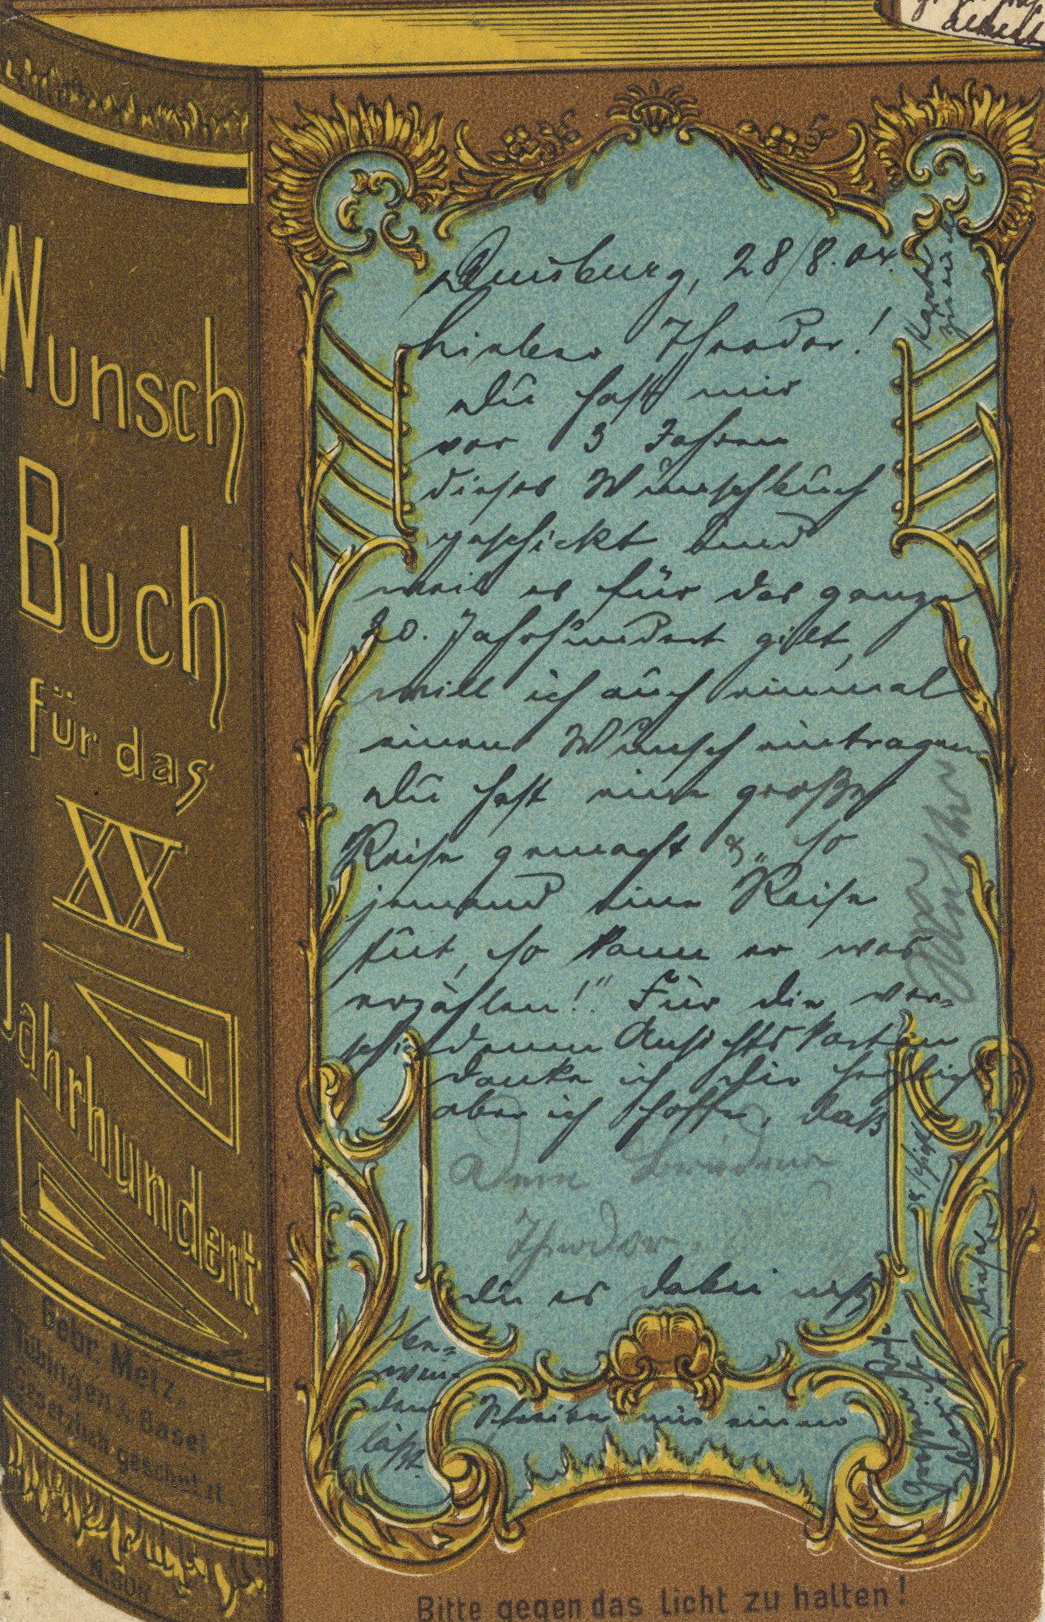 Wunsch
Buch
für das
XX
Jahrhundert
Gebr. Metz,
Tübingen & Basel.
Gesetzlich geschützt
Duisburg, 28/8. 04.
Lieber Theodor!
Du hast mir
vor 3 Jahren
dieses Wunschbuch
geschickt und
weil es für das ganze
20. Jahrhundert gilt,
will ich auch einmal
einen Wunsch eintragen
Du hast eine große
Reise gemacht & „So
jemand eine Reise
tut, so kann er was
erzählen!" Für die ver-
schiedenen Ansichtskarten
danke ich Dir herzlich
aber ich hoffe, daß
Dein
Theodor.
Du es dabei nicht
be-
wen-
den
läßt.
Schreibe mir einen
Karte
zurück
Bitte gegen das Licht zu halten!